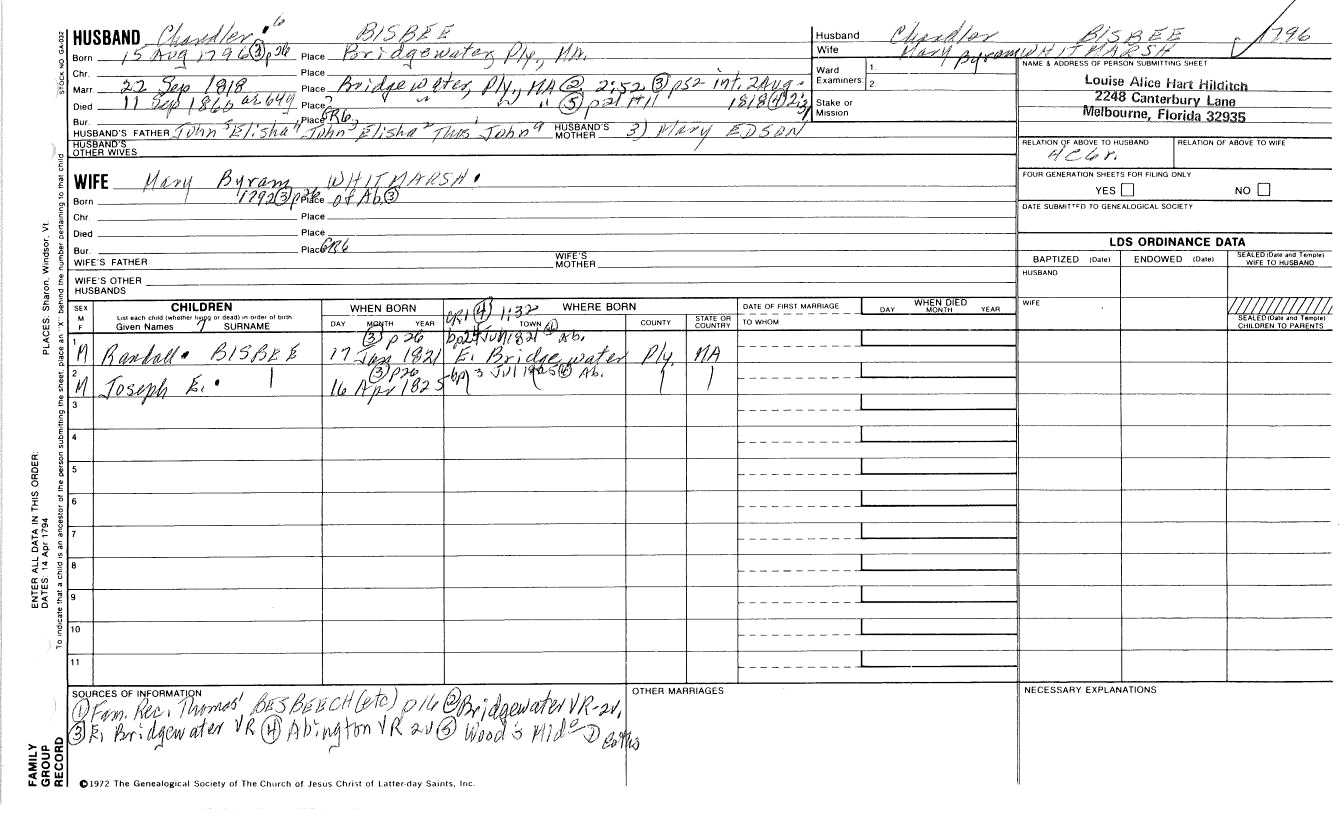 HUSBAND Chandler 6 BISBEE
Born 15 Aug 1796 (3) p26 Place Bridgewater, Ply, MA.
Chr. Place
Marr. 22 Sep 1818 Place Bridgewater, Ply, MA (2) 2:52 (3) p52 int. 2 Aug.
Died 11 Sep 1860 Place " " " (5) p21 1818 (4)
Bur. Place GR6
HUSBAND'S FATHER John 5 Elisha 4 John 3 Elisha 2 Thos 1 John HUSBAND'S MOTHER 3) Mary EDSON
HUSBAND'S OTHER WIVES
WIFE Mary Byram WHITMARSH
Born 1792 (3) p26 Place of Ab. (3)
Chr. Place
Died Place
Bur. Place GR6
WIFE'S FATHER WIFE'S MOTHER
WIFE'S OTHER HUSBANDS
Husband Chandler BISBEE 1796
Wife Mary Byram WHITMARSH
Ward Examiners: 1. 2.
Stake or Mission
NAME & ADDRESS OF PERSON SUBMITTING SHEET
Louise Alice Hart Hilditch
2248 Canterbury Lane
Melbourne, Florida 32935
RELATION OF ABOVE TO HUSBAND RELATION OF ABOVE TO WIFE
FOUR GENERATION SHEETS FOR FILING ONLY
YES NO
DATE SUBMITTED TO GENEALOGICAL SOCIETY
LDS ORDINANCE DATA
BAPTIZED (Date) ENDOWED (Date) SEALED (Date and Temple) WIFE TO HUSBAND
HUSBAND
WIFE
SEALED (Date and Temple) CHILDREN TO PARENTS
SEX M F
CHILDREN
List each child (whether living or dead) in order of birth
Given Names 7 SURNAME
WHEN BORN
DAY MONTH YEAR
WHERE BORN
TOWN COUNTY STATE OR COUNTRY
DATE OF FIRST MARRIAGE
TO WHOM
WHEN DIED
DAY MONTH YEAR
(4) 1:32
(3) p26 Jul 1821 Ab.
1 M Randall BISBEE 17 Jan 1821 E. Bridgewater Ply MA
(3) p26 bp 3 Jul 1825 (4) Ab.
2 M Joseph E. 16 Apr 1825
3
4
5
6
7
8
9
10
11
SOURCES OF INFORMATION
(1) Fam. Rec. Thomas' BESBEECH (etc) p16 (2) Bridgewater VR-2v.
(3) E. Bridgewater VR (4) Abington VR 2v (5) Wood's Deaths
OTHER MARRIAGES
NECESSARY EXPLANATIONS
©1972 The Genealogical Society of The Church of Jesus Christ of Latter-day Saints, Inc.
FAMILY GROUP RECORD
ENTER ALL DATA IN THIS ORDER:
DATES: 14 Apr 1794
PLACES: Sharon, Windsor, Vt.
To indicate that a child is an ancestor of the person submitting the sheet, place an "X" behind the number pertaining to that child
STOCK NO GA-032